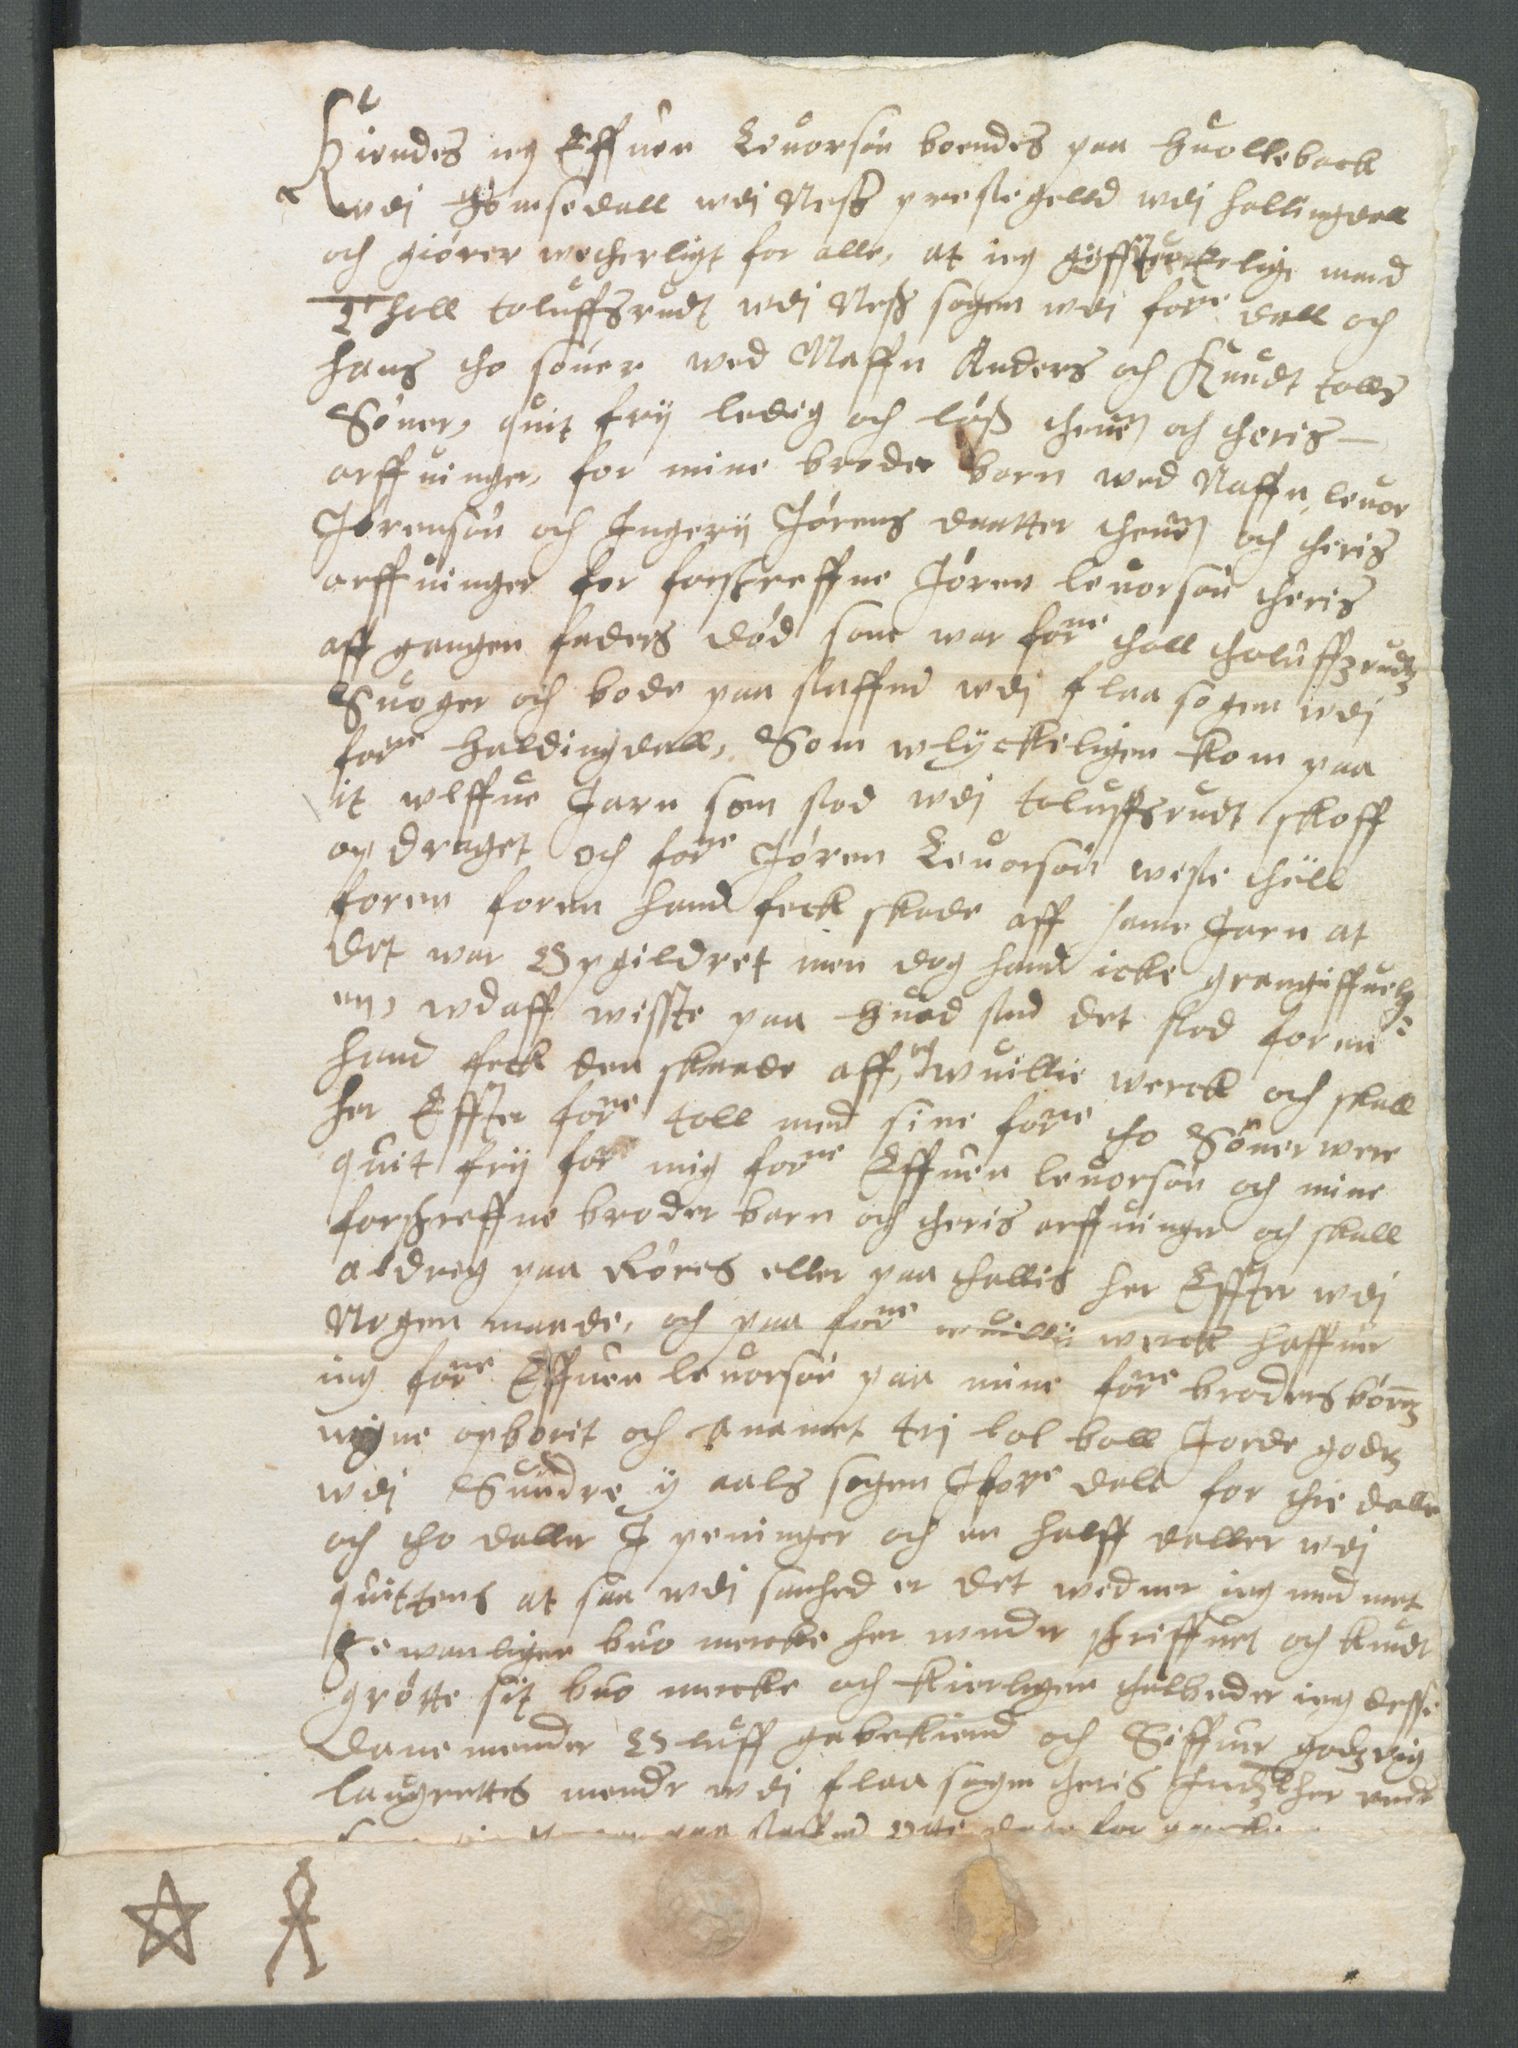 Kiendes ieg Effuen Leuorsön boendes paa Huolleback
wdj Gomsedall wdj Neß prestegelld wdj Hallingdall
och giörer wetherligt for alle, at ieg giffuer Erlige mand
Tholl toluffsrudt wdj Neß sogen wdj forne dall och
hans tho söner wed Naffn Anders och Knudt tolls
Söner, quit frij ledig och löß thenem och theris
arffuinger, for mine broder barn wed Naffn, leuor
Jörensön och Ingerij Jörens daatter thenem och theris
arffuinger for forskreffne Jören leuorsön theris
aff gangen faders död som war forne tholl tholuffzrudtz
Suoger och bode paa staffnd wdj flaa sogen wdj
forne Haldingdall, Som wlyckeligen kom paa
it wlffue Jarn som stod wdj toluffsrudt skoff
op draget och forne Jören Leuorsön weste thill
foren foren hand feck skade aff same Jarn at
det war Opgildret men dog hand icke grangiffuelig-
en, wdaff wisste paa Huad sted det stod foren
hand feck den skaade aff, ieg wuillie werck och skall
her Effter forne toll med sine forne tho Söner were
quit frij for mig forne Effuen leuorsön och mine
forskreffne broder barn och theris arffuinger och skall
aldreg paa Röres eller paa thallis her Effter wdj
Nogen maade, och paa forne wuillie werck haffuer
ieg forne Effuen leuorsön paa mine forne broders börnz
wegne opborit och Anamet trj lol boll Jorde godz
wdj Sundre y aals sogen J forne dall for thie daller
och tho daller J peninger och en halff daller wdj
quittens at saa wdj sanhed er det wedner ieg med met
Sewanliger buo mercke her wnder skreffuet och Knudt
grötte sit buo mercke och kierligen thilbeder ieg desse
Dane mender Oluff gabekiend och Siffuer godzuig
laugrettes mender wdj flaa sogen theris Indzegller her wnder
paa staffnd Otte dage for